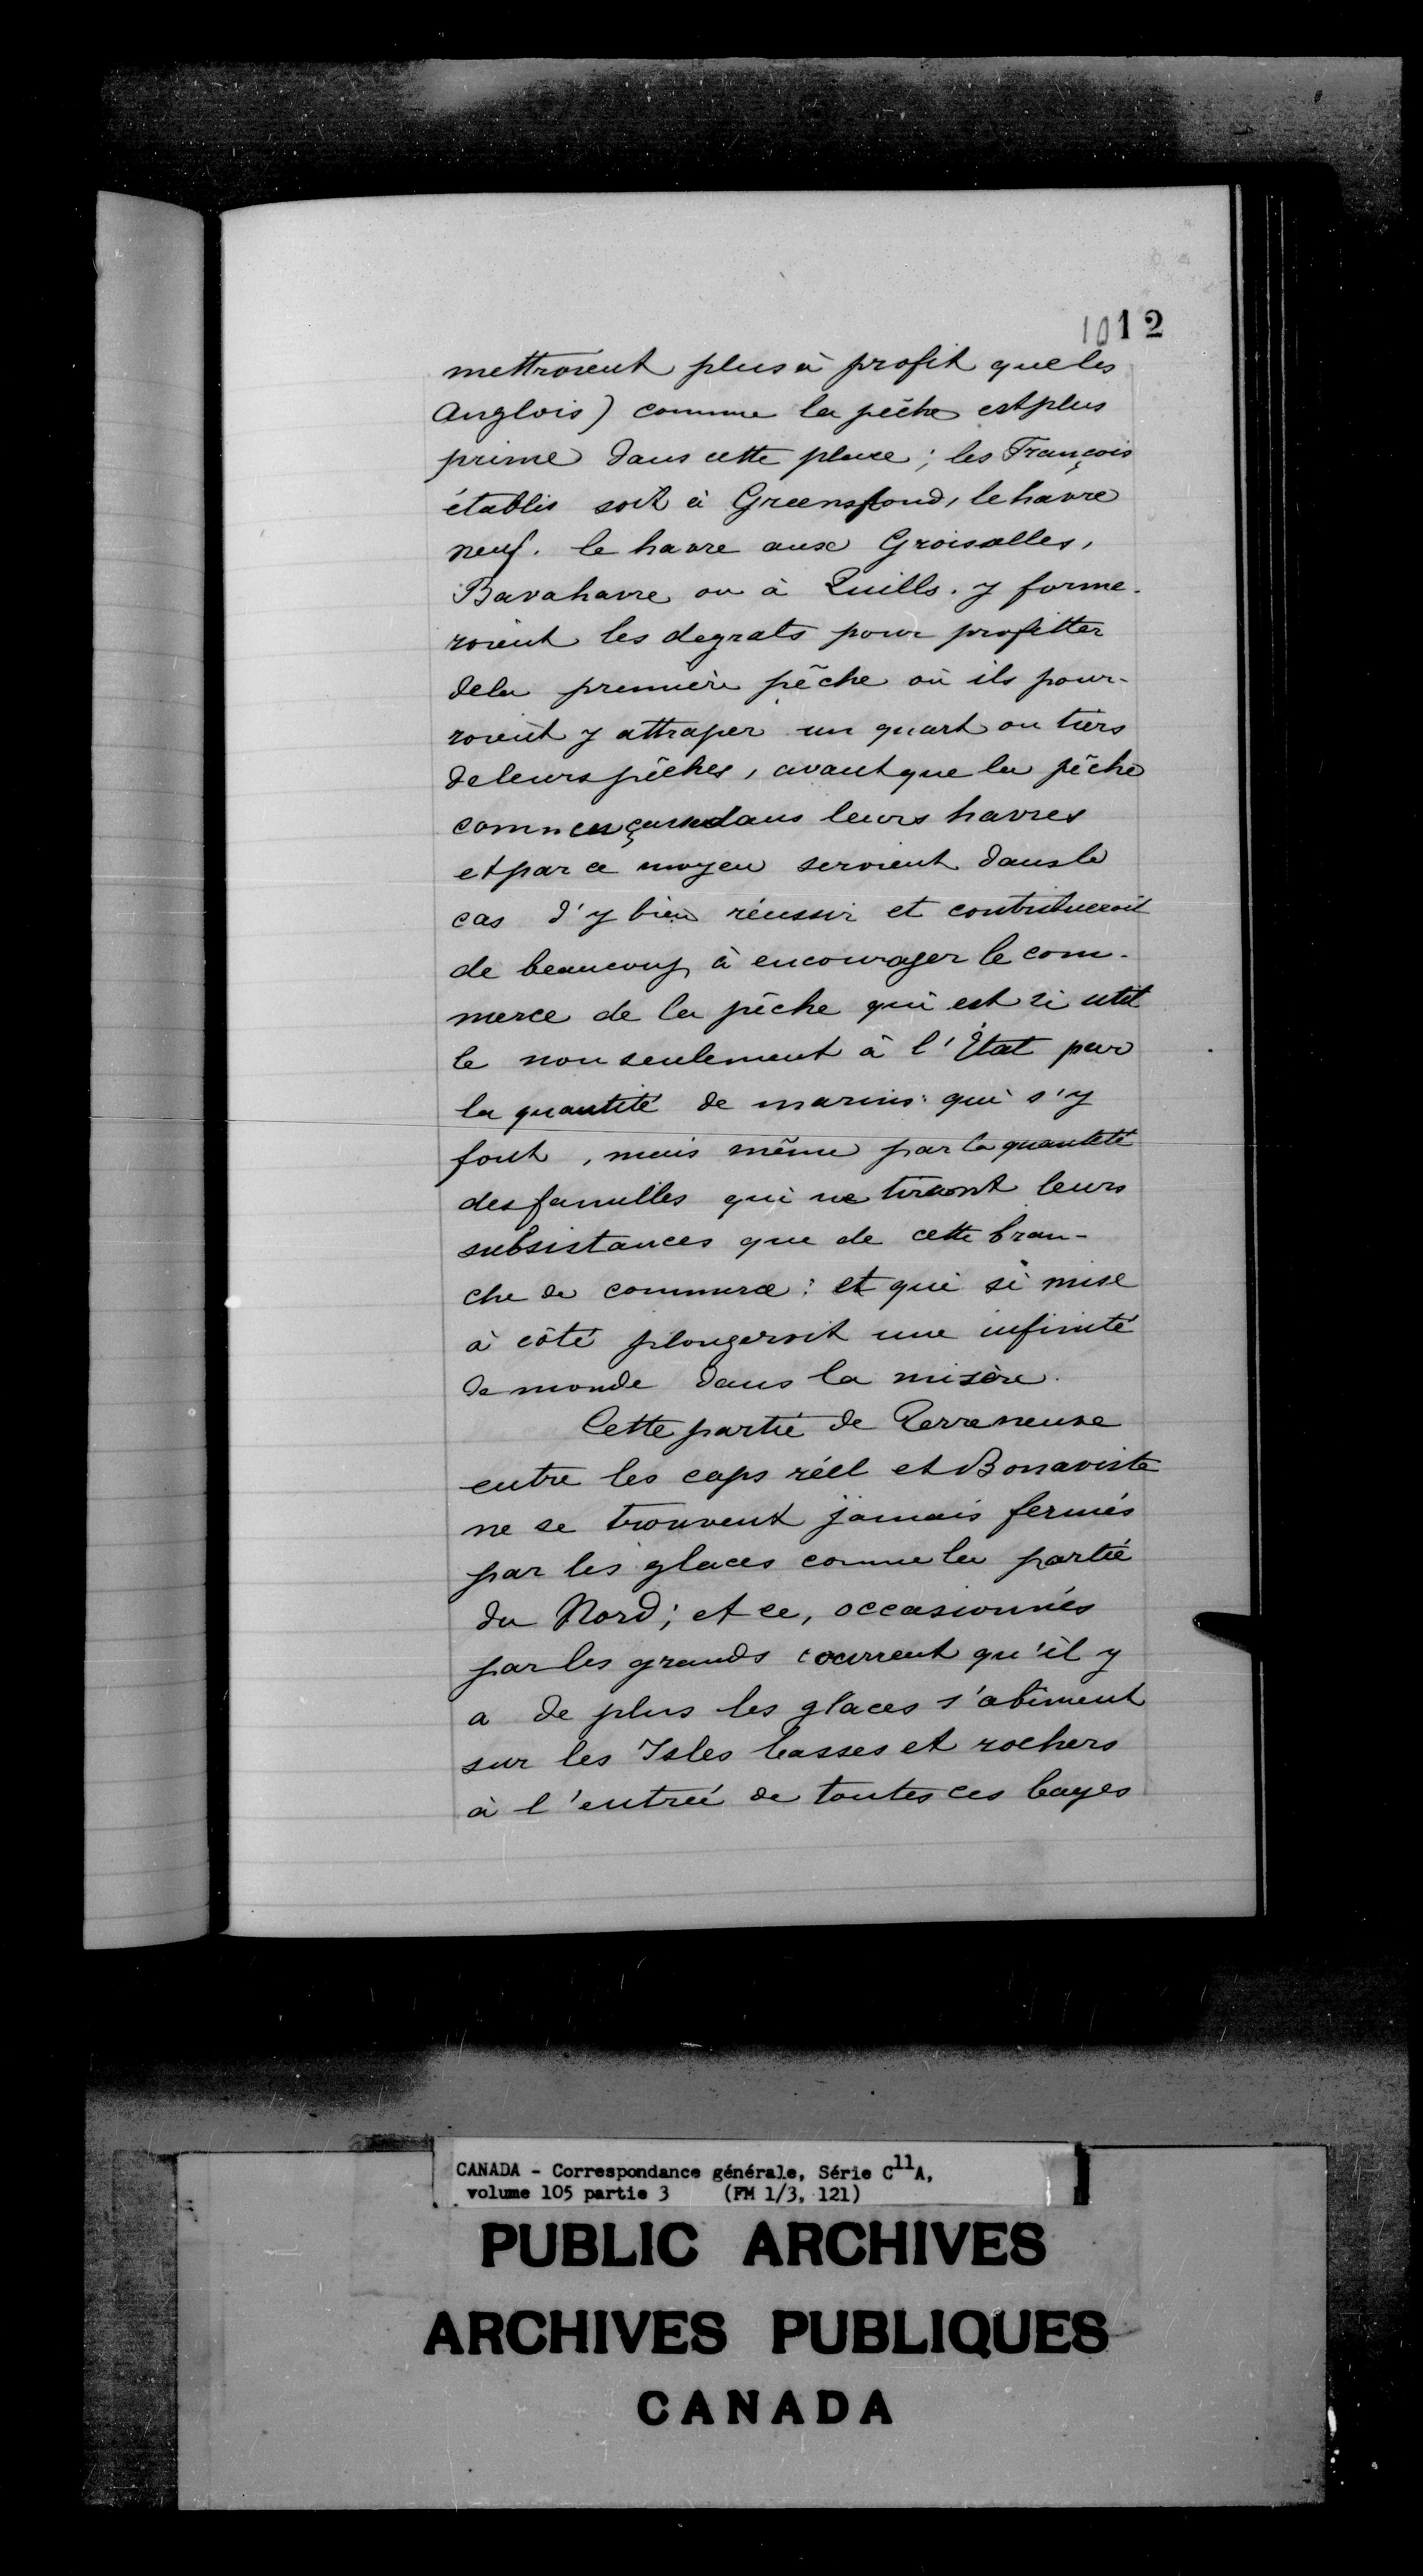 1012
mettroient plus à profit que les
Anglois) comme la pêche est plus
prime dans cette place; les François
établis soit à Greenspond, le havre
neuf. le havre aux Groisalles,
Bavahavre ou à Quills. y forme-
roient les degrats pour profitter
dela premiere pêche où ils pour-
roient y attraper un quart ou tiers
de leurs pêches, avant que la pêche
dans leurs havres
et par ce moyen seroient dans le
cas d'y bien réussir et contribueroit
de beaucoup à encourager le com-
merce de la pêche qui est si util
le non seulement à l'État par
la quantité de marins qui s'y
font, mais même par la quantité
des familles qui ne tirent leurs
subsistances que de cette bran-
che de commerce: et qui si mise
à côté plongeroit une infinité
de monde dans la misère.
Cette partie de Terreneuve
entre les caps réel et Bonaviste
ne se trouvent jamais fermés
par les glaces comme la partie
du Nord; et ce, occasionnés
par les grands courrent qu'il y
a de plus les glaces s'abiment
sur les Isles basses et rochers
à l'entrée de toutes ces bayes
CANADA - Correspondance générale, Série C11A,
volume 105 partie 3 (FM 1/3, 121)
PUBLIC ARCHIVES
ARCHIVES PUBLIQUES
CANADA